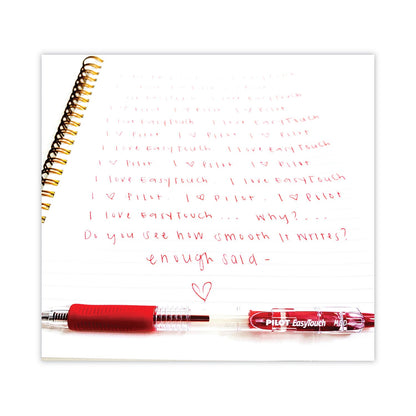 I love EasyTouch
I ♡ Pilot I ♡ Pilot
I love EasyTouch I love EasyTouch
I ♡ Pilot I ♡ Pilot I ♡ Pilot
I love EasyTouch I love EasyTouch
I ♡ Pilot I ♡ Pilot I ♡ Pilot
I love EasyTouch I love EasyTouch
I ♡ Pilot. I ♡ Pilot. I ♡ Pilot
I love EasyTouch ... Why? ...
Do you see how smooth it writes?
enough said -
♡
PILOT EasyTouch MED